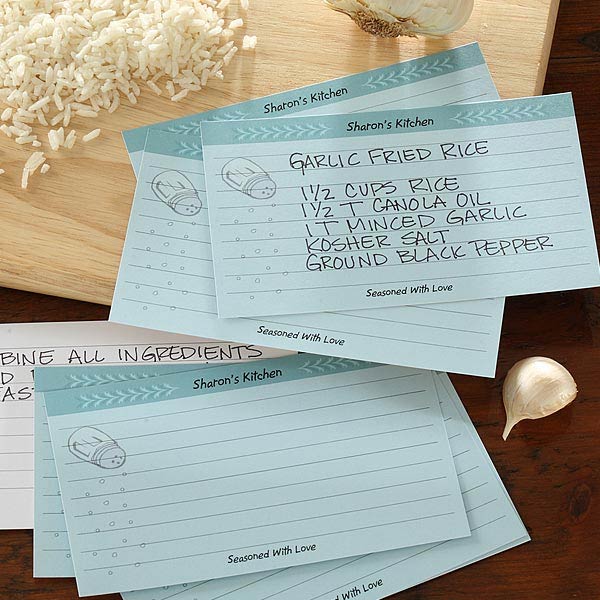 Sharon's Kitchen
Seasoned With Love
Sharon's Kitchen
GARLIC FRIED RICE
1 1/2 CUPS RICE
1 1/2 T CANOLA OIL
1 T MINCED GARLIC
KOSHER SALT
GROUND BLACK PEPPER
Seasoned With Love
BINE ALL INGREDIENTS
Sharon's Kitchen
Seasoned With Love
Seasoned With Love